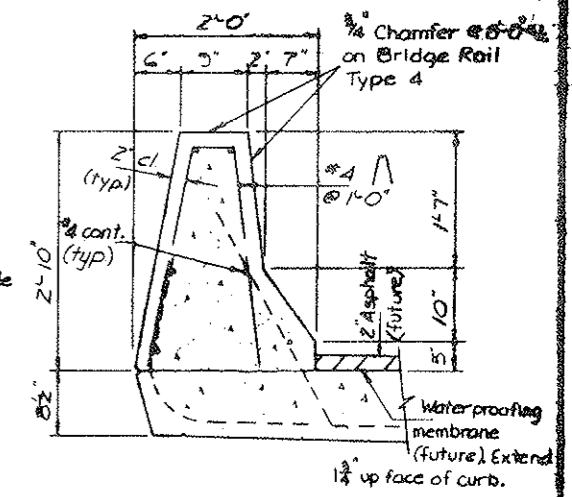 2'-0"
6" 9" 2" 7"
3/4" Chamfer
on Bridge Rail
Type 4
2" cl.
(typ.)
#4
@ 1'-0"
#4 cont.
(typ)
2'-10"
8½"
1'-7"
10"
5"
2" Asphalt
(future)
Waterproofing
membrane
(future). Extend
1¾" up face of curb.